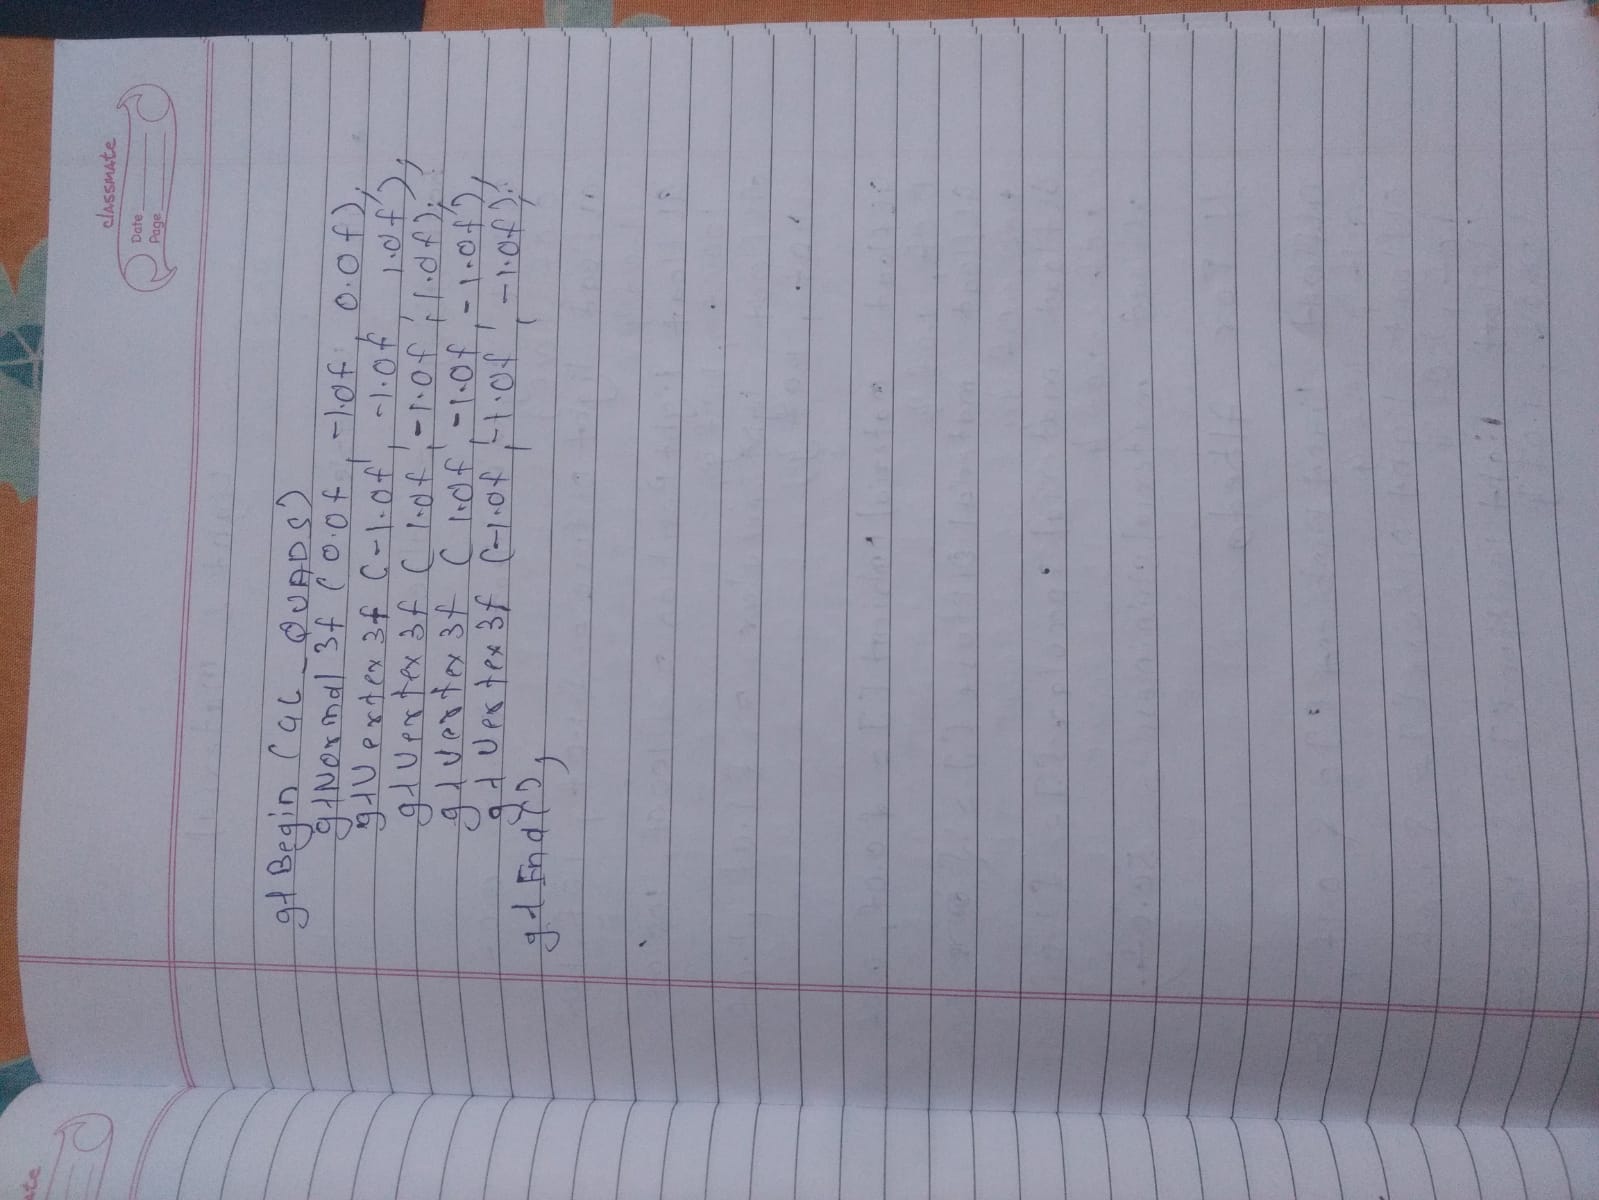 ate
classmate
Date
Page
glBegin (GL_QUADS)
glNormal 3f ( 0.0f , -1.0f , 0.0f );
glVertex 3f ( -1.0f , -1.0f , 1.0f );
glVertex 3f ( 1.0f , -1.0f , 1.0f );
glVertex 3f ( 1.0f , -1.0f , -1.0f );
glVertex 3f (-1.0f , -1.0f , -1.0f );
glEnd();